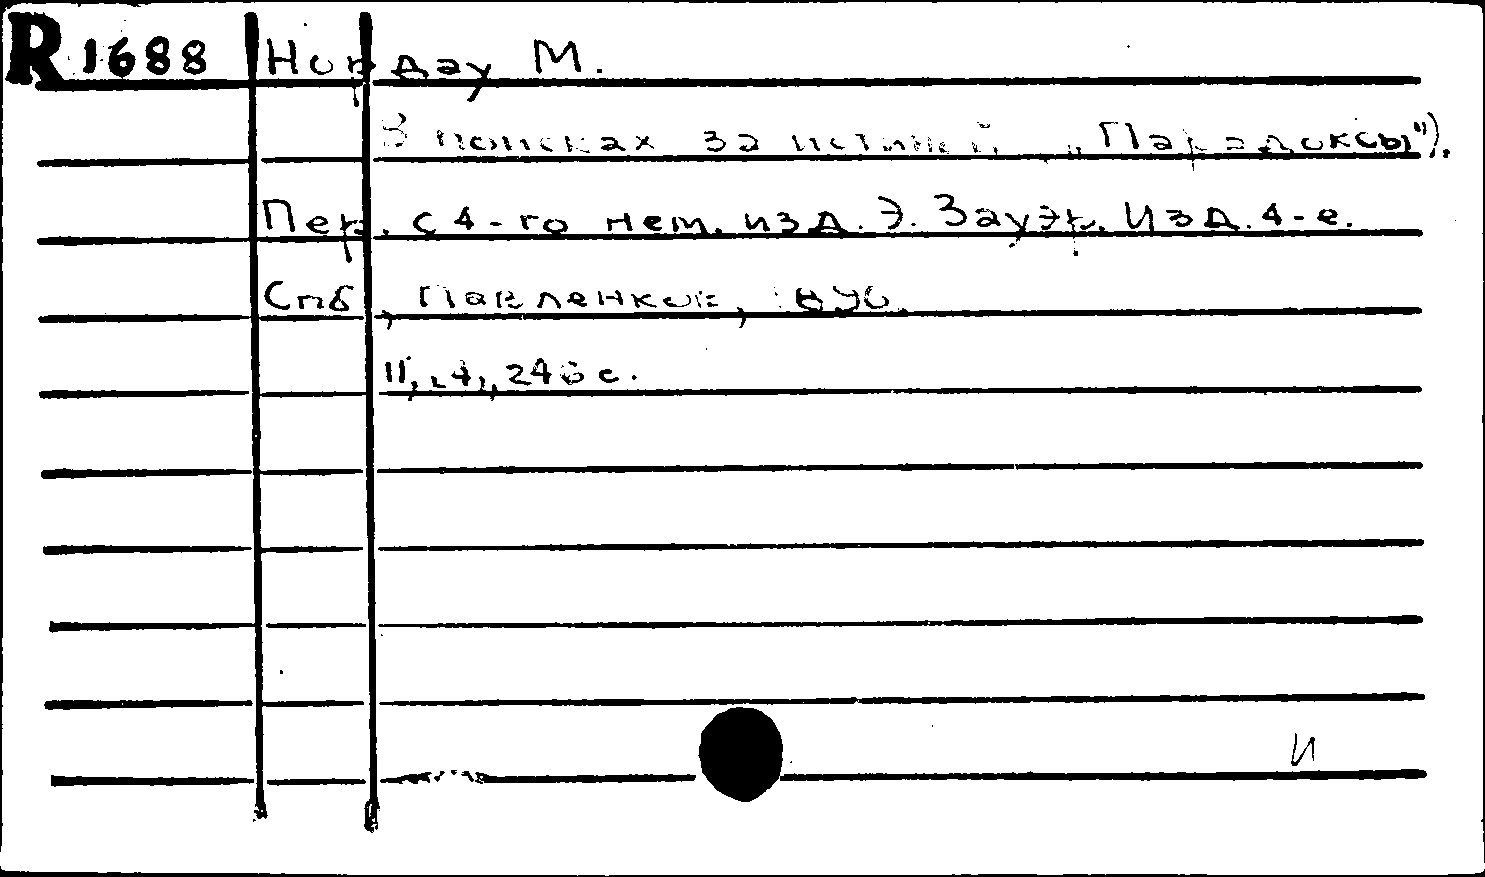 R 1688 Нордау М.
В поисках за истиной „Парадоксы").
Пер. с 4-го нем. изд. Э. Зауэр. Изд. 4-е.
Спб, Павленков,
II, [4], 246 с.
И